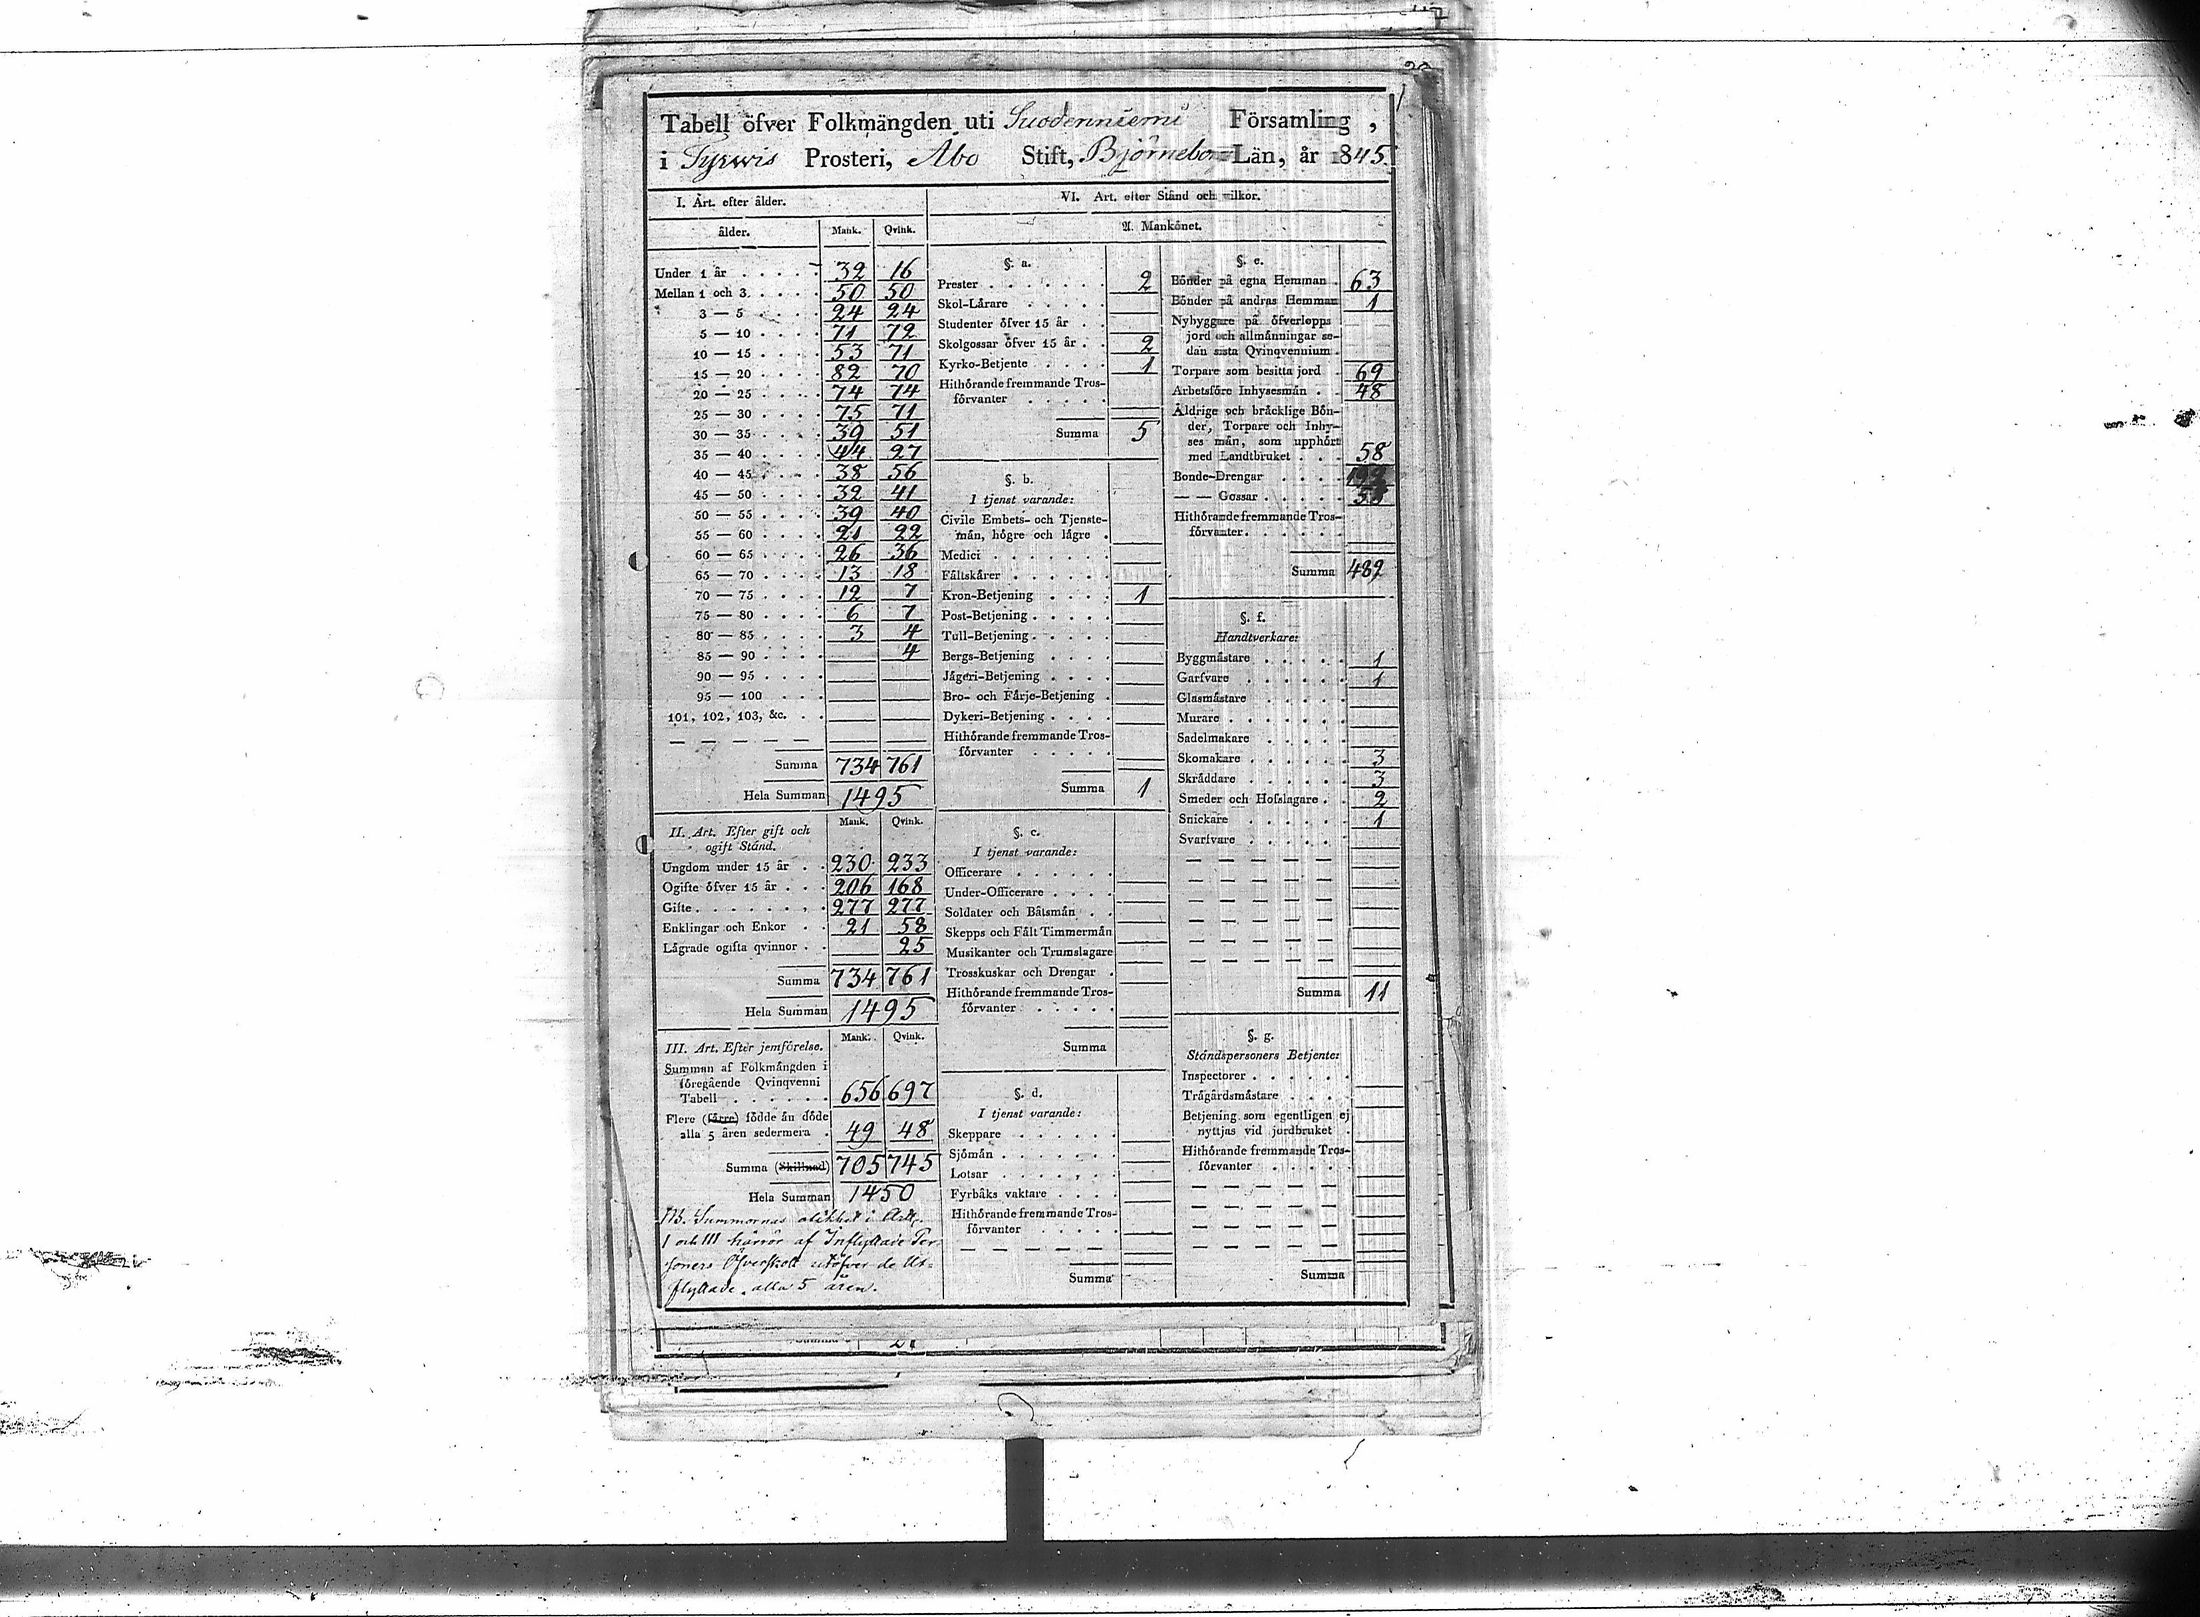 Tabell öfver Folkmängden uti Suodenniemi Församling,
i Tyrwis Prosteri, Åbo Stift, Björneborgs Län, år 1845.
I. Art. efter ålder.
ålder. Mank. Qvink.
Under 1 år . . . . . 32 16
Mellan 1 och 3 . . . . 50 50
3 — 5 . . . . 24 24
5 — 10 . . . . 71 72
10 — 15 . . . . 53 71
15 — 20 . . . . 82 70
20 — 25 . . . . 74 74
25 — 30 . . . . 75 71
30 — 35 . . . . 39 51
35 — 40 . . . . 44 27
40 — 45 . . . . 38 56
45 — 50 . . . . 32 41
50 — 55 . . . . 39 40
55 — 60 . . . . 21 22
60 — 65 . . . . 26 36
65 — 70 . . . . 13 18
70 — 75 . . . . 12 7
75 — 80 . . . . 6 7
80 — 85 . . . . 3 4
85 — 90 . . . . 4
90 — 95 . . . .
95 — 100 . . .
101, 102, 103, &c. . .
Summa 734 761
Hela Summan 1495
II. Art. Efter gift och Mank. Qvink.
ogift Stånd.
Ungdom under 15 år . . 230 233
Ogifte öfver 15 år . . . 206 168
Gifte . . . . . . . 277 277
Enklingar och Enkor . . 21 58
Lägrade ogifta qvinnor . . 25
Summa 734 761
Hela Summan 1495
III. Art. Efter jemförelse. Mank. Qvink.
Summan af Folkmängden i
föregående Qvinqvenni
Tabell . . . . . . 656 697
Flere (färre) födde än döde
alla 5 åren sedermera . 49 48
Summa (Skillnad) 705 745
Hela Summan 1450
NB. Summornas olikhet i Art.
I och III härrör af Inflyttade Per-
soners Öfverskott utöfver de Ut-
flyttade, alla 5 åren.
VI. Art. efter Stånd och wilkor.
A. Mankönet.
§. a.
Prester . . . . . . . 2
Skol-Lärare . . . . .
Studenter öfver 15 år . .
Skolgossar öfver 15 år . . 2
Kyrko-Betjente . . . . 1
Hithörande fremmande Tros-
förvanter . . . . .
Summa 5
§. b.
I tjenst varande:
Civile Embets- och Tjenste-
män, högre och lägre .
Medici . . . . . . .
Fältskärer . . . . . .
Kron-Betjening . . . . 1
Post-Betjening . . . . .
Tull-Betjening . . . . .
Bergs-Betjening . . . .
Jägeri-Betjening . . . .
Bro- och Färje-Betjening .
Dykeri-Betjening . . . .
Hithörande fremmande Tros-
förvanter . . . . .
Summa 1
§. c.
I tjenst varande:
Officerare . . . . . .
Under-Officerare . . . .
Soldater och Båtsmän . .
Skepps och Fält Timmermän
Musikanter och Trumslagare
Trosskuskar och Drengar .
Hithörande fremmande Tros-
förvanter . . . . .
Summa
§. d.
I tjenst varande:
Skeppare . . . . . .
Sjömän . . . . . . .
Lotsar . . . . . . .
Fyrbåks vaktare . . . .
Hithörande fremmande Tros-
förvanter . . . . .
Summa
§. e.
Bönder på egna Hemman . 63
Bönder på andras Hemman 1
Nybyggare på öfverlopps
jord och allmänningar se-
dan sista Qvinqvennium .
Torpare som besitta jord . 69
Arbetsföre Inhysesmän . . 48
Äldrige och bräcklige Bön-
der, Torpare och Inhy-
ses män, som upphört
med Landtbruket . . . 58
Bonde-Drengar . . . .
— — Gossar . . . . .
Hithörande fremmande Tros-
förvanter . . . . . .
Summa 482
§. f.
Handtverkare:
Byggmästare . . . . . 1
Garfvare . . . . . . 1
Glasmästare . . . . .
Murare . . . . . . .
Sadelmakare . . . . .
Skomakare . . . . . . 3
Skräddare . . . . . . 3
Smeder och Hofslagare . . 2
Snickare . . . . . . 1
Svarfvare . . . . .
Summa 11
§. g.
Ståndspersoners Betjente:
Inspectorer . . . . . .
Trägårdsmästare . . . .
Betjening som egentligen ej
nyttjas vid jordbruket .
Hithörande fremmande Tros-
förvanter . . . .
Summa